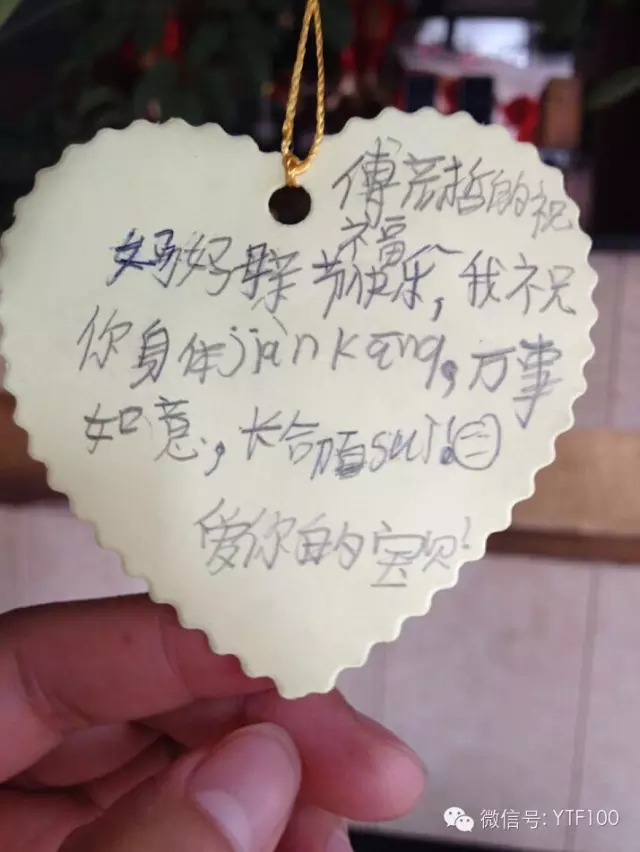 傅彦哲的祝
福
妈妈母亲节快乐,我祝
你身体jiàn kāng,万事
如意,长命百suì!
爱你的宝贝!
微信号: YTF100